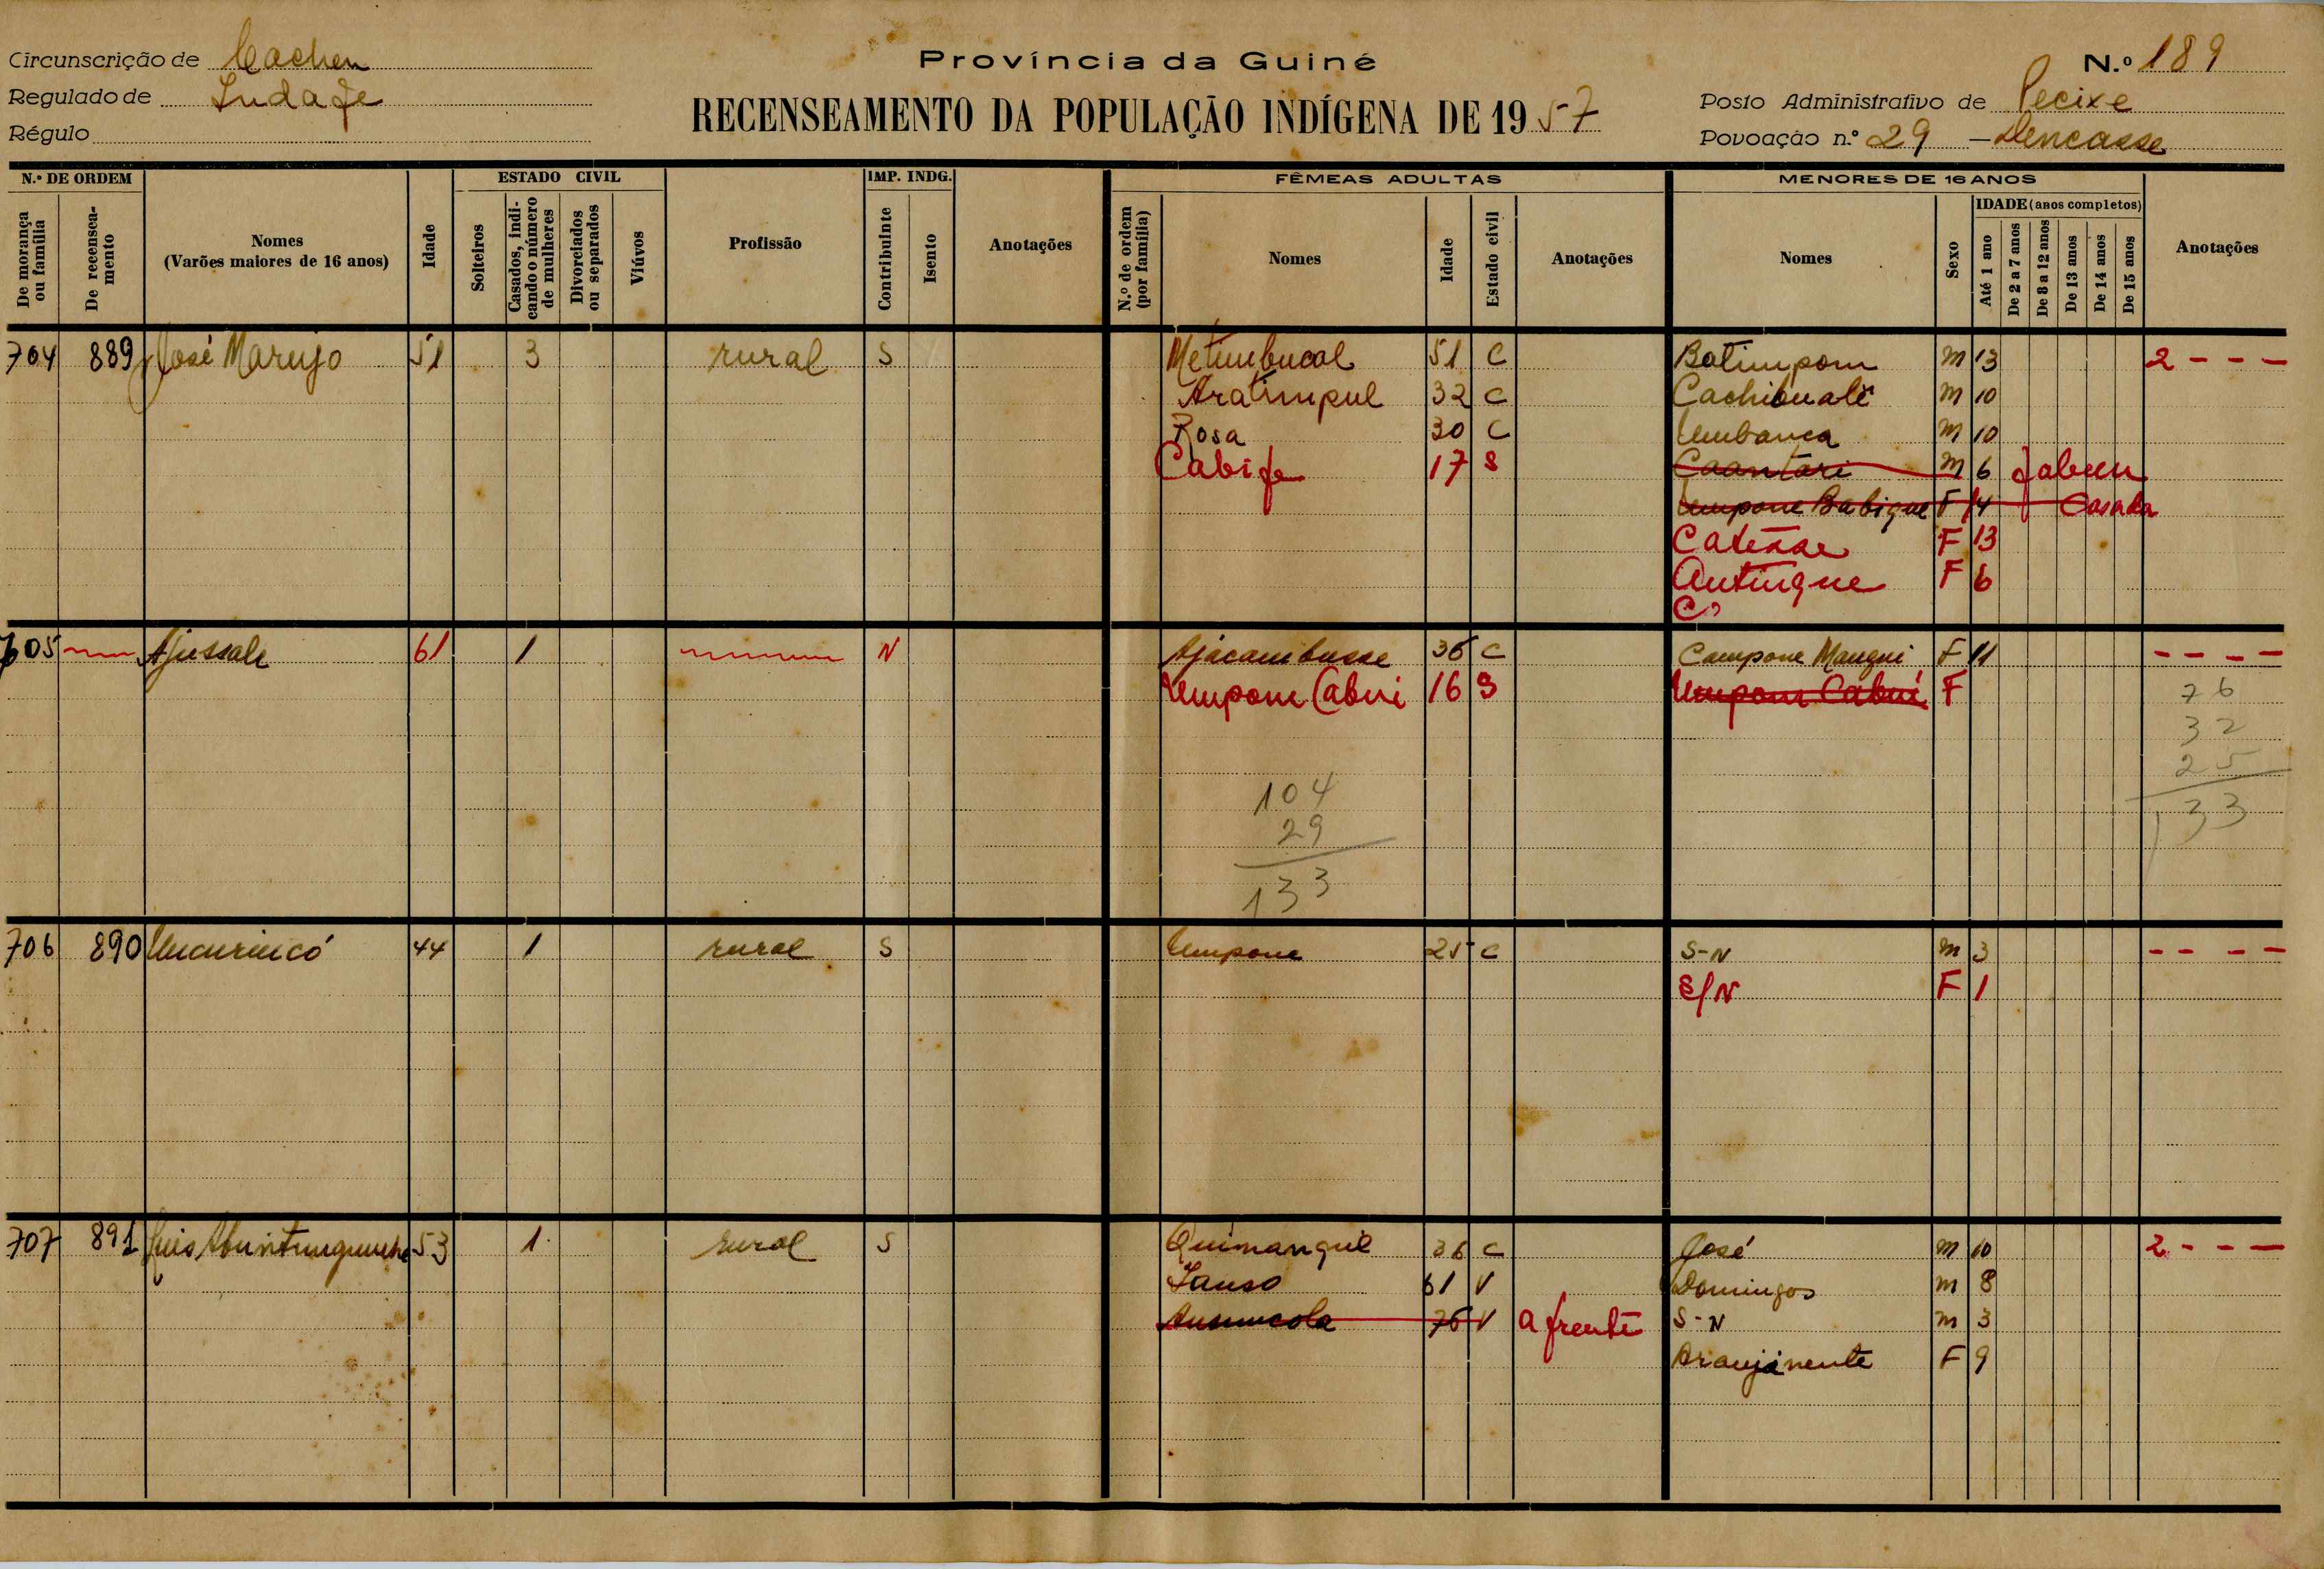 Circunscrição de Cacheu
Província da Guiné
N.º 189
Regulado de Indafe
RECENSEAMENTO DA POPULAÇÃO INDÍGENA DE 1957
Posto Administrativo de Pecixe
Régulo
Povoação n.º 29 -
N.º DE ORDEM
ESTADO CIVIL
IMP. INDG.
FÊMEAS ADULTAS
MENORES DE 16 ANOS
De morança ou família
De recenseamento
Nomes (Varões maiores de 16 anos)
Idade
Solteiros
Casados, indicando o número de mulheres
Divorciados ou separados
Viúvos
Profissão
Contribuinte
Isento
Anotações
N.º de ordem (por família)
Nomes
Idade
Estado civil
Anotações
Nomes
Sexo
IDADE (anos completos)
Até 1 ano
De 2 a 7 anos
De 8 a 12 anos
De 13 anos
De 14 anos
De 15 anos
Anotações
704 889 José Marujo 51 3 rural S Metimbucal 51 C Batimpom M 13 2 - - -
Aratimpul 32 C Cachibuale M 10
Rosa 30 C Umbanca M 10
Cabife 17 S Caantari M 6
Umpone Babique F 14 Casada
Catesse F 13
Antingue F 6
705 Ajussale 61 1 N Ajacambusse 36 C Campone Mangui F 11 - - - -
Umpom Cabui 16 S Umpom Cabui F
76
32
25
133
104
29
133
706 890 44 1 rural S Umpone 25 C S-N M 3 - - - -
S/N F 1
707 891 Luis 53 1 rural S Quimanque 36 C José M 10 2 - - -
61 V Domingos M 8
76 V a frente S-N M 3
F 9